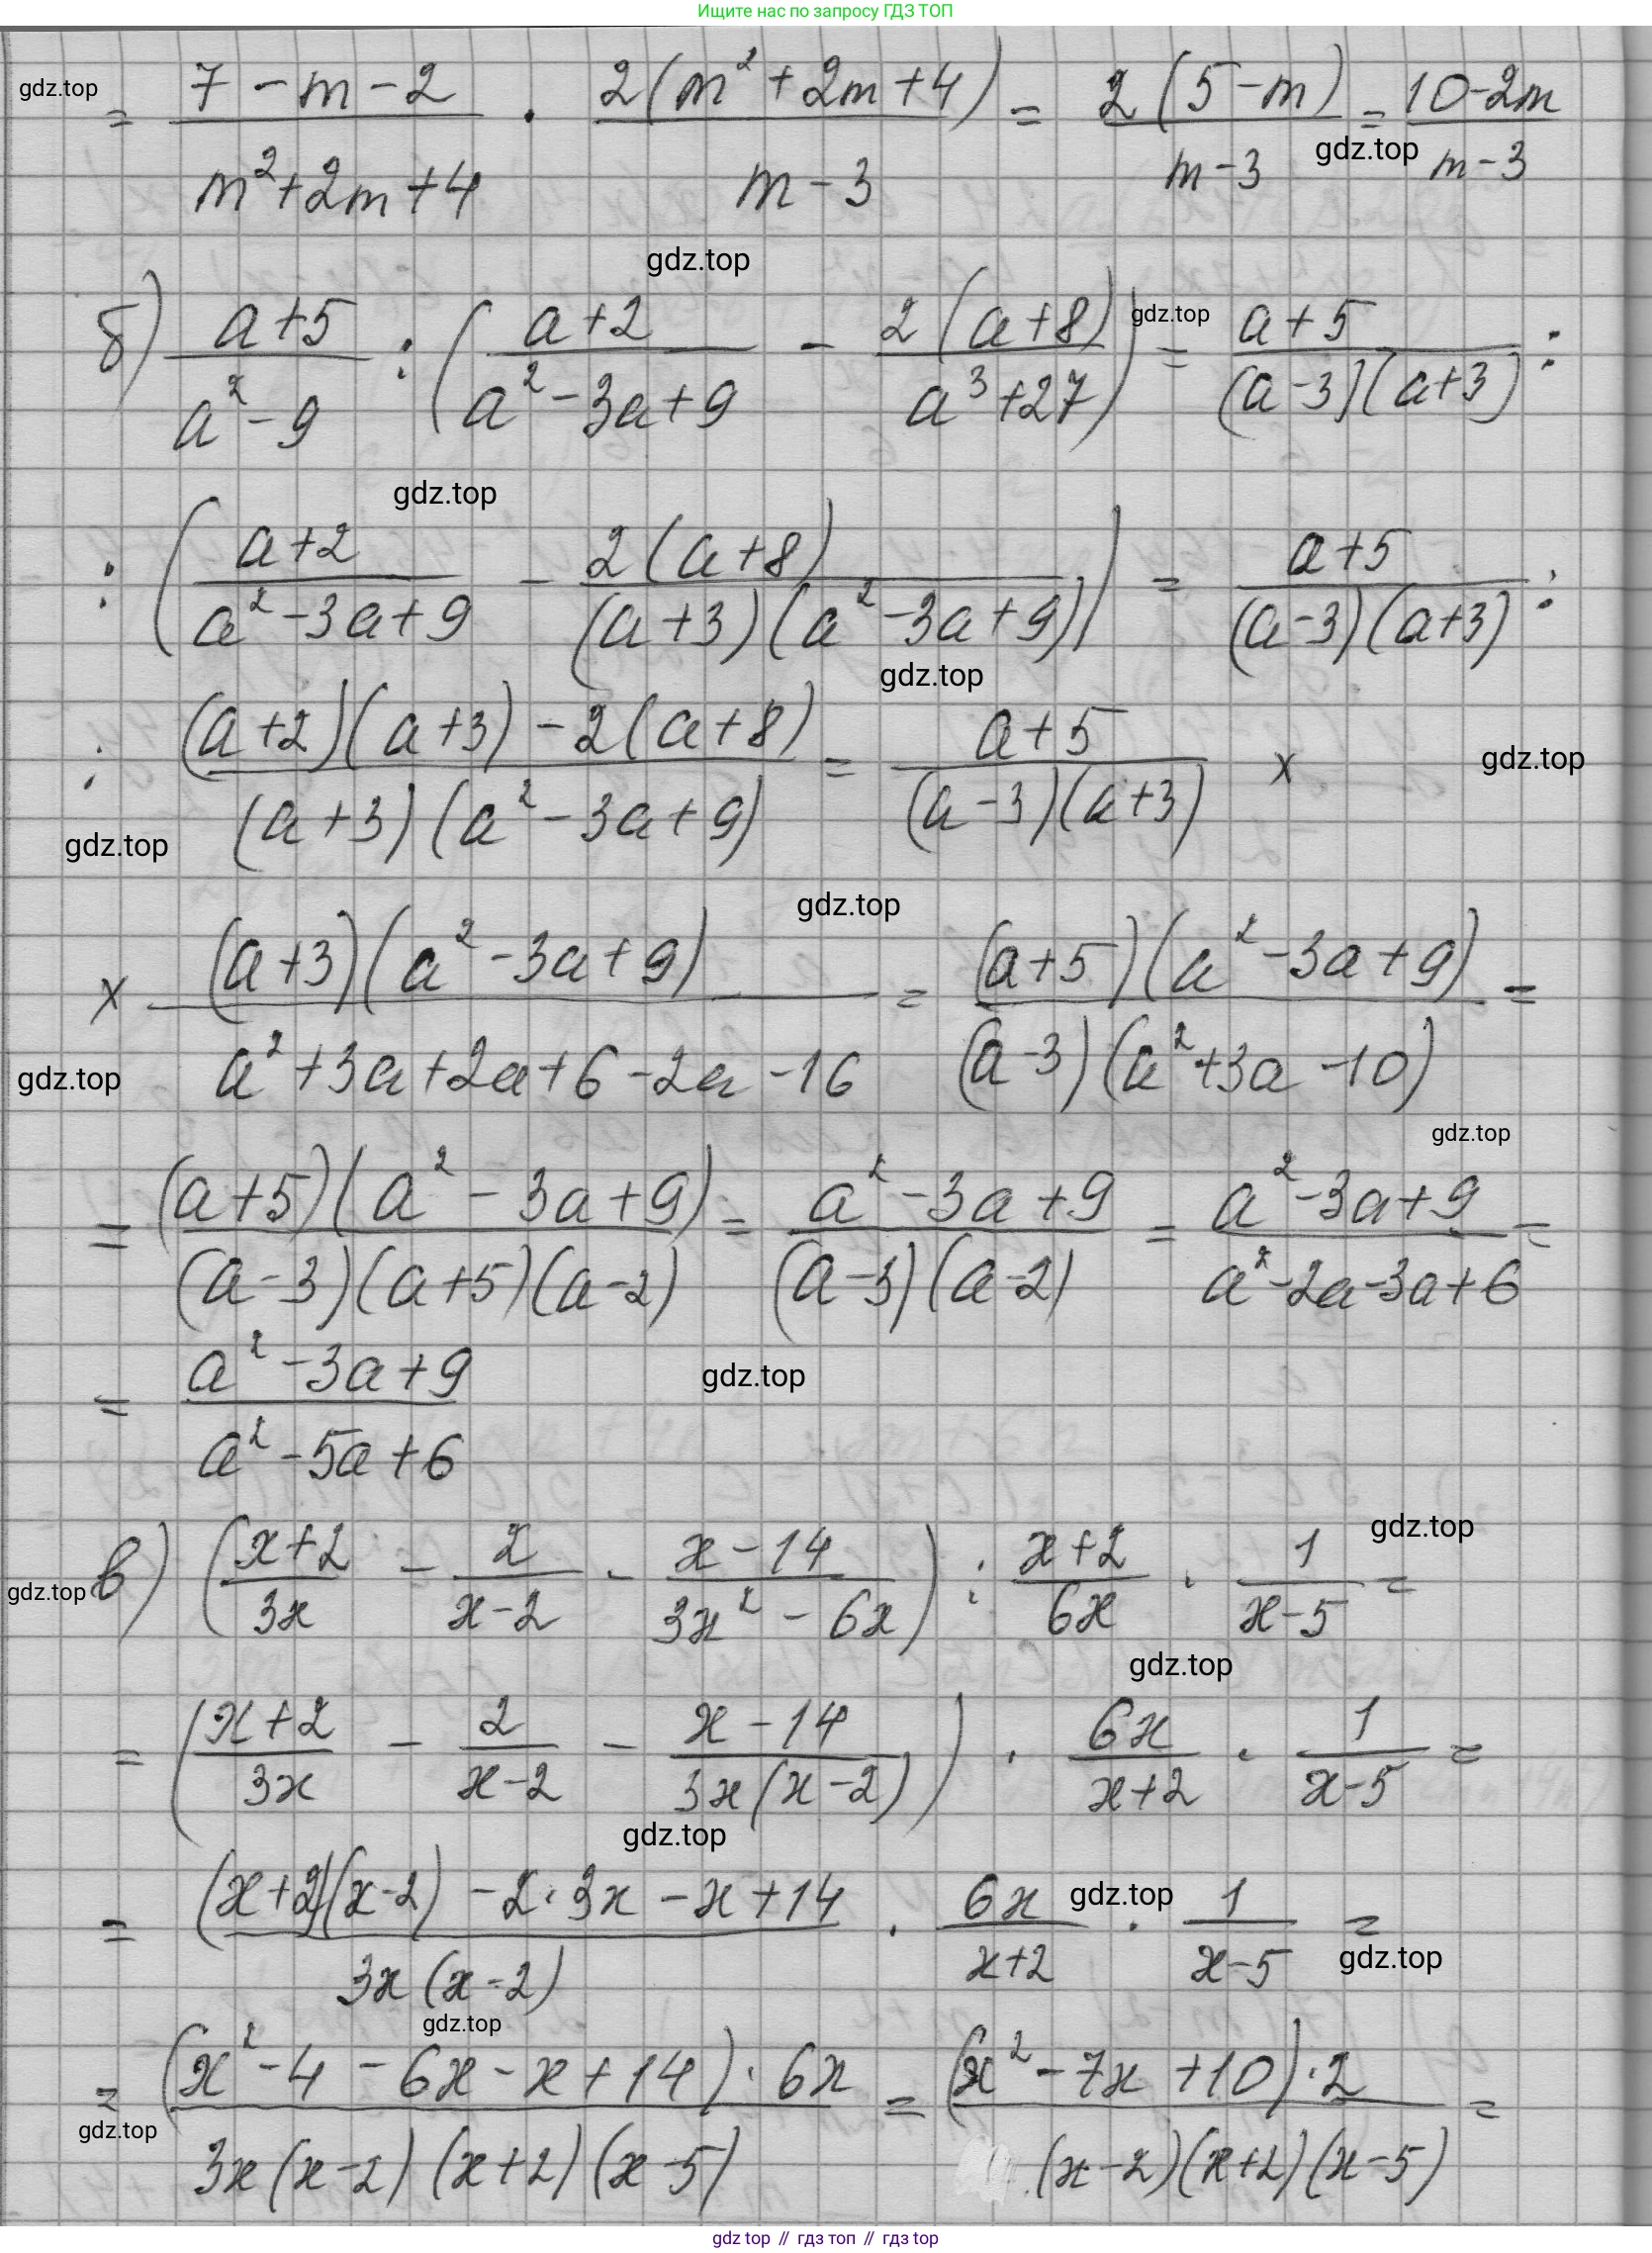 Ищите нас по запросу ГДЗ ТОП
gdz.top
= (7 - m - 2)/(m² + 2m + 4) · 2(m² + 2m + 4)/(m - 3) = 2(5 - m)/(m - 3) = (10 - 2m)/(m - 3)
gdz.top
gdz.top
б) (a + 5)/(a² - 9) : ((a + 2)/(a² - 3a + 9) - 2(a + 8)/(a³ + 27)) = (a + 5)/((a - 3)(a + 3)) :
gdz.top
gdz.top
: ((a + 2)/(a² - 3a + 9) - 2(a + 8)/((a + 3)(a² - 3a + 9))) = (a + 5)/((a - 3)(a + 3)) :
gdz.top
: ((a + 2)(a + 3) - 2(a + 8))/((a + 3)(a² - 3a + 9)) = (a + 5)/((a - 3)(a + 3)) ×
gdz.top
gdz.top
gdz.top
× (a + 3)(a² - 3a + 9)/(a² + 3a + 2a + 6 - 2a - 16) = (a + 5)(a² - 3a + 9)/((a - 3)(a² + 3a - 10)) =
gdz.top
gdz.top
= (a + 5)(a² - 3a + 9)/((a - 3)(a + 5)(a - 2)) = (a² - 3a + 9)/((a - 3)(a - 2)) = (a² - 3a + 9)/(a² - 2a - 3a + 6) =
= (a² - 3a + 9)/(a² - 5a + 6)
gdz.top
gdz.top
в) ((x + 2)/3x - 2/(x - 2) - (x - 14)/(3x² - 6x)) : (x + 2)/6x · 1/(x - 5) =
gdz.top
gdz.top
= ((x + 2)/3x - 2/(x - 2) - (x - 14)/(3x(x - 2))) · 6x/(x + 2) · 1/(x - 5) =
gdz.top
= ((x + 2)(x - 2) - 2 · 3x - x + 14)/(3x(x - 2)) · 6x/(x + 2) · 1/(x - 5) =
gdz.top
gdz.top
gdz.top
= (x² - 4 - 6x - x + 14) · 6x/(3x(x - 2)(x + 2)(x - 5)) = (x² - 7x + 10) · 2/((x - 2)(x + 2)(x - 5)) =
gdz.top
gdz top // гдз топ // гдз top